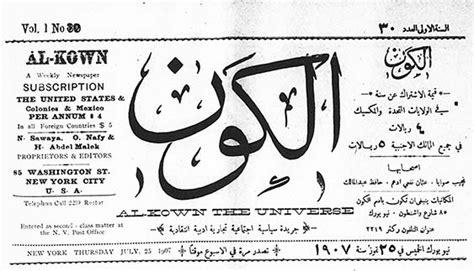 Vol. 1 No 30
السنة الاولى العدد ٣٠
AL-KOWN
A Weekly Newspaper
SUBSCRIPTION
THE UNITED STATES &
Colonies & Mexico
PER ANNUM $ 4
In all Foreign Countries $ 5
N. Sawaya, O. Nafy &
H. Abdel Malek
PROPRIETORS & EDITORS
85 WASHINGTON ST.
NEW YORK CITY
U. S. A.
Telephon Call 2219 Rector
Entered as second-class matter at
the N. Y. Post Office
الكون
ALKOWN THE UNIVERSE
جريدة سياسية اجتماعية تجارية ادبية انتقادية
تصدر مرة في الاسبوع موقتاً
الكون
قيمة الاشتراك عن سنة
في الولايات المتحدة والمكسيك
٤ ريالات
في جميع الممالك الاجنبية ٥ ريالات
اصحابها
نجيب صوايا . عثمان نفعي ادم . حافظ عبدالملك
المكاتبات بعنوان الكون في
٨٥ شارع واشنطون . نيويورك
عنوان التلفون ركتر ٢٢١٩
NEW YORK THURSDAY JULY. 25 1907
نيويورك الخميس في ٢٥ تموز سنة ١٩٠٧